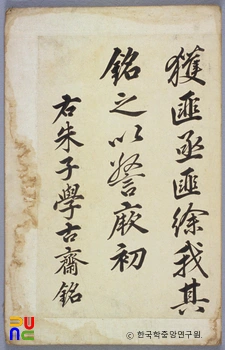 獲匪亟匪徐我其
銘之以警厥初
右朱子學古齋銘
ⓒ 한국학중앙연구원